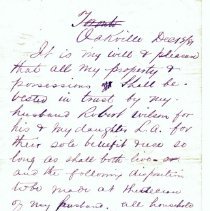 Oakville Dec
It is my will & pleasure
that all my property &
possessions shall be
vested in trust by my
husband Robert Wilson for
his & my daughter L.A. for
their sole benefit & use so
long as shall both live
and the following disposition
made at the decease
of my husband. all household